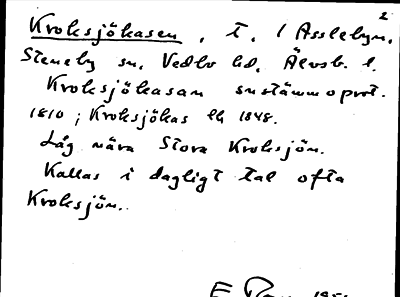 2
Kroksjökasen, t. / Asslebyn,
Steneby sn, Vedbo hd, Älvsb. l.
Kroksjökasan sustämmoprot.
1810; Kroksjökas lh 1848.
Låg nära Stora Kroksjön.
Kallas i dagligt tal ofta
Kroksjön.
E